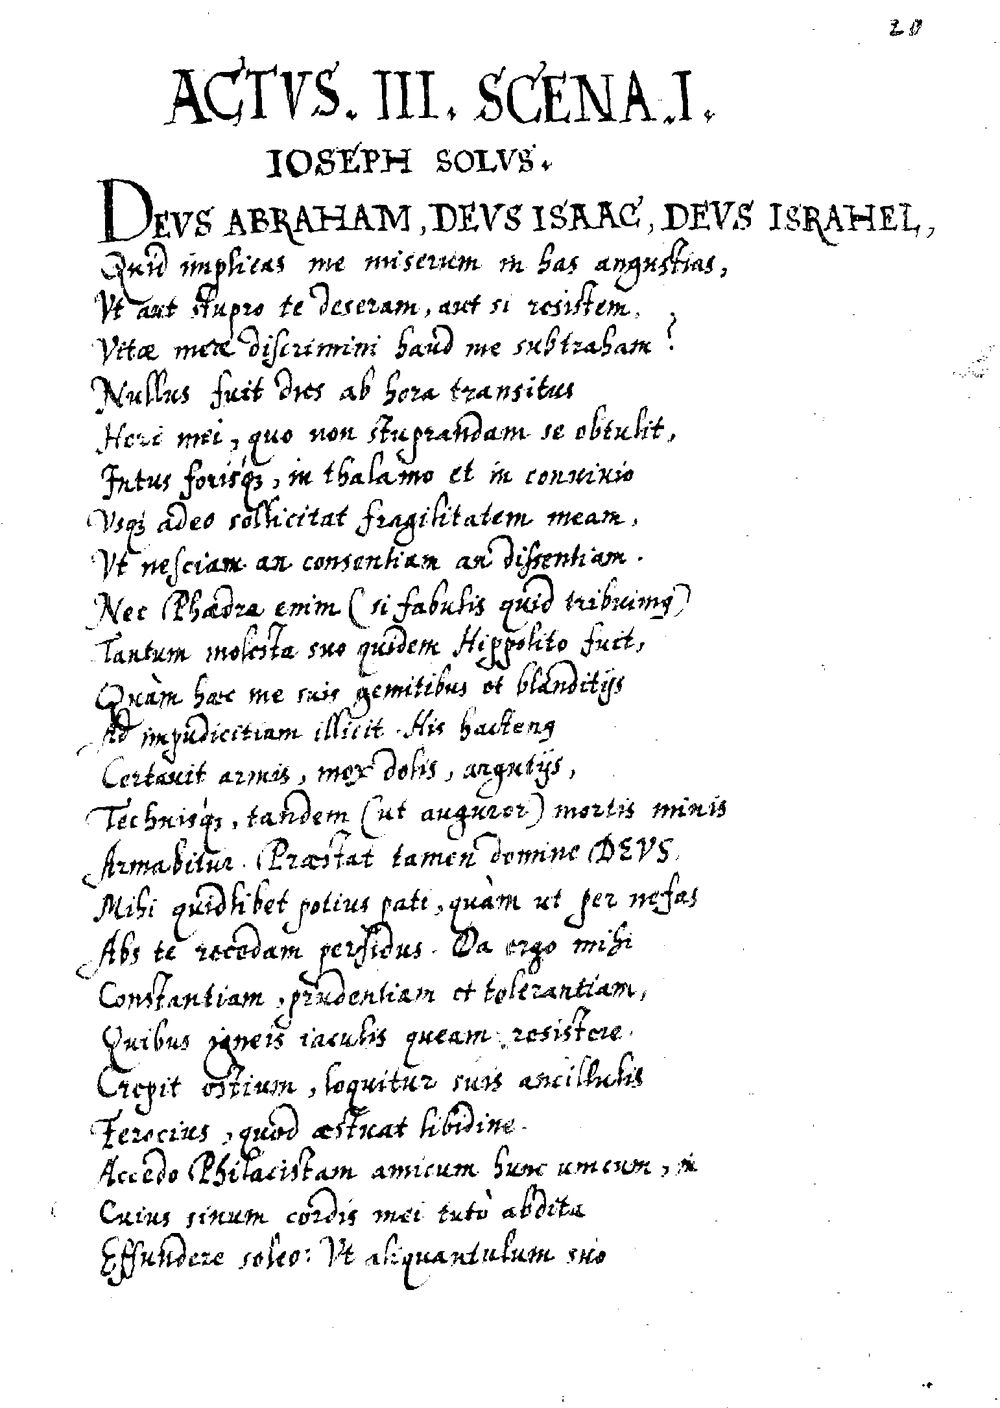 20
ACTVS. III. SCENA. I.
IOSEPH SOLVS.
DEVS ABRAHAM, DEVS ISAAC, DEVS ISRAHEL,
Quid implicas me miserum in has angustias,
Vt aut stupro te deseram, aut si resistem,
Vitæ meæ discrimini haud me subtraham?
Nullus fuit dies ab hora transitus
Heri mei, quo non stuprandam se obtulit,
Intus forisq́;, in thalamo et in conuiuio
Vsq́; adeo sollicitat fragilitatem meam,
Vt nesciam an consentiam an dissentiam.
Nec Phædra enim (si fabulis quid tribuimq)
Tantum molesta suo quidem Hippolito fuit,
Quàm hæc me suis gemitibus et blanditijs
Ad impudicitiam illicit. His hactenq
Certauit armis, mox dolis, argutijs,
Technisq́;, tandem (ut auguror) mortis minis
Armabitur. Præstat tamen domine DEVS
Mihi quidlibet potius pati, quàm ut per nefas
Abs te recedam perfidus. Da ergo mihi
Constantiam, prudentiam et tolerantiam,
Quibus igneis iaculis queam resistere.
Crepit ostium, loquitur suis ancillulis
Ferocius, quod æstuat libidine.
Accedo Philacistam amicum hunc unicum, in
Cuius sinum cordis mei tutò abdita
Effundere soleo: Vt aliquantulum suo